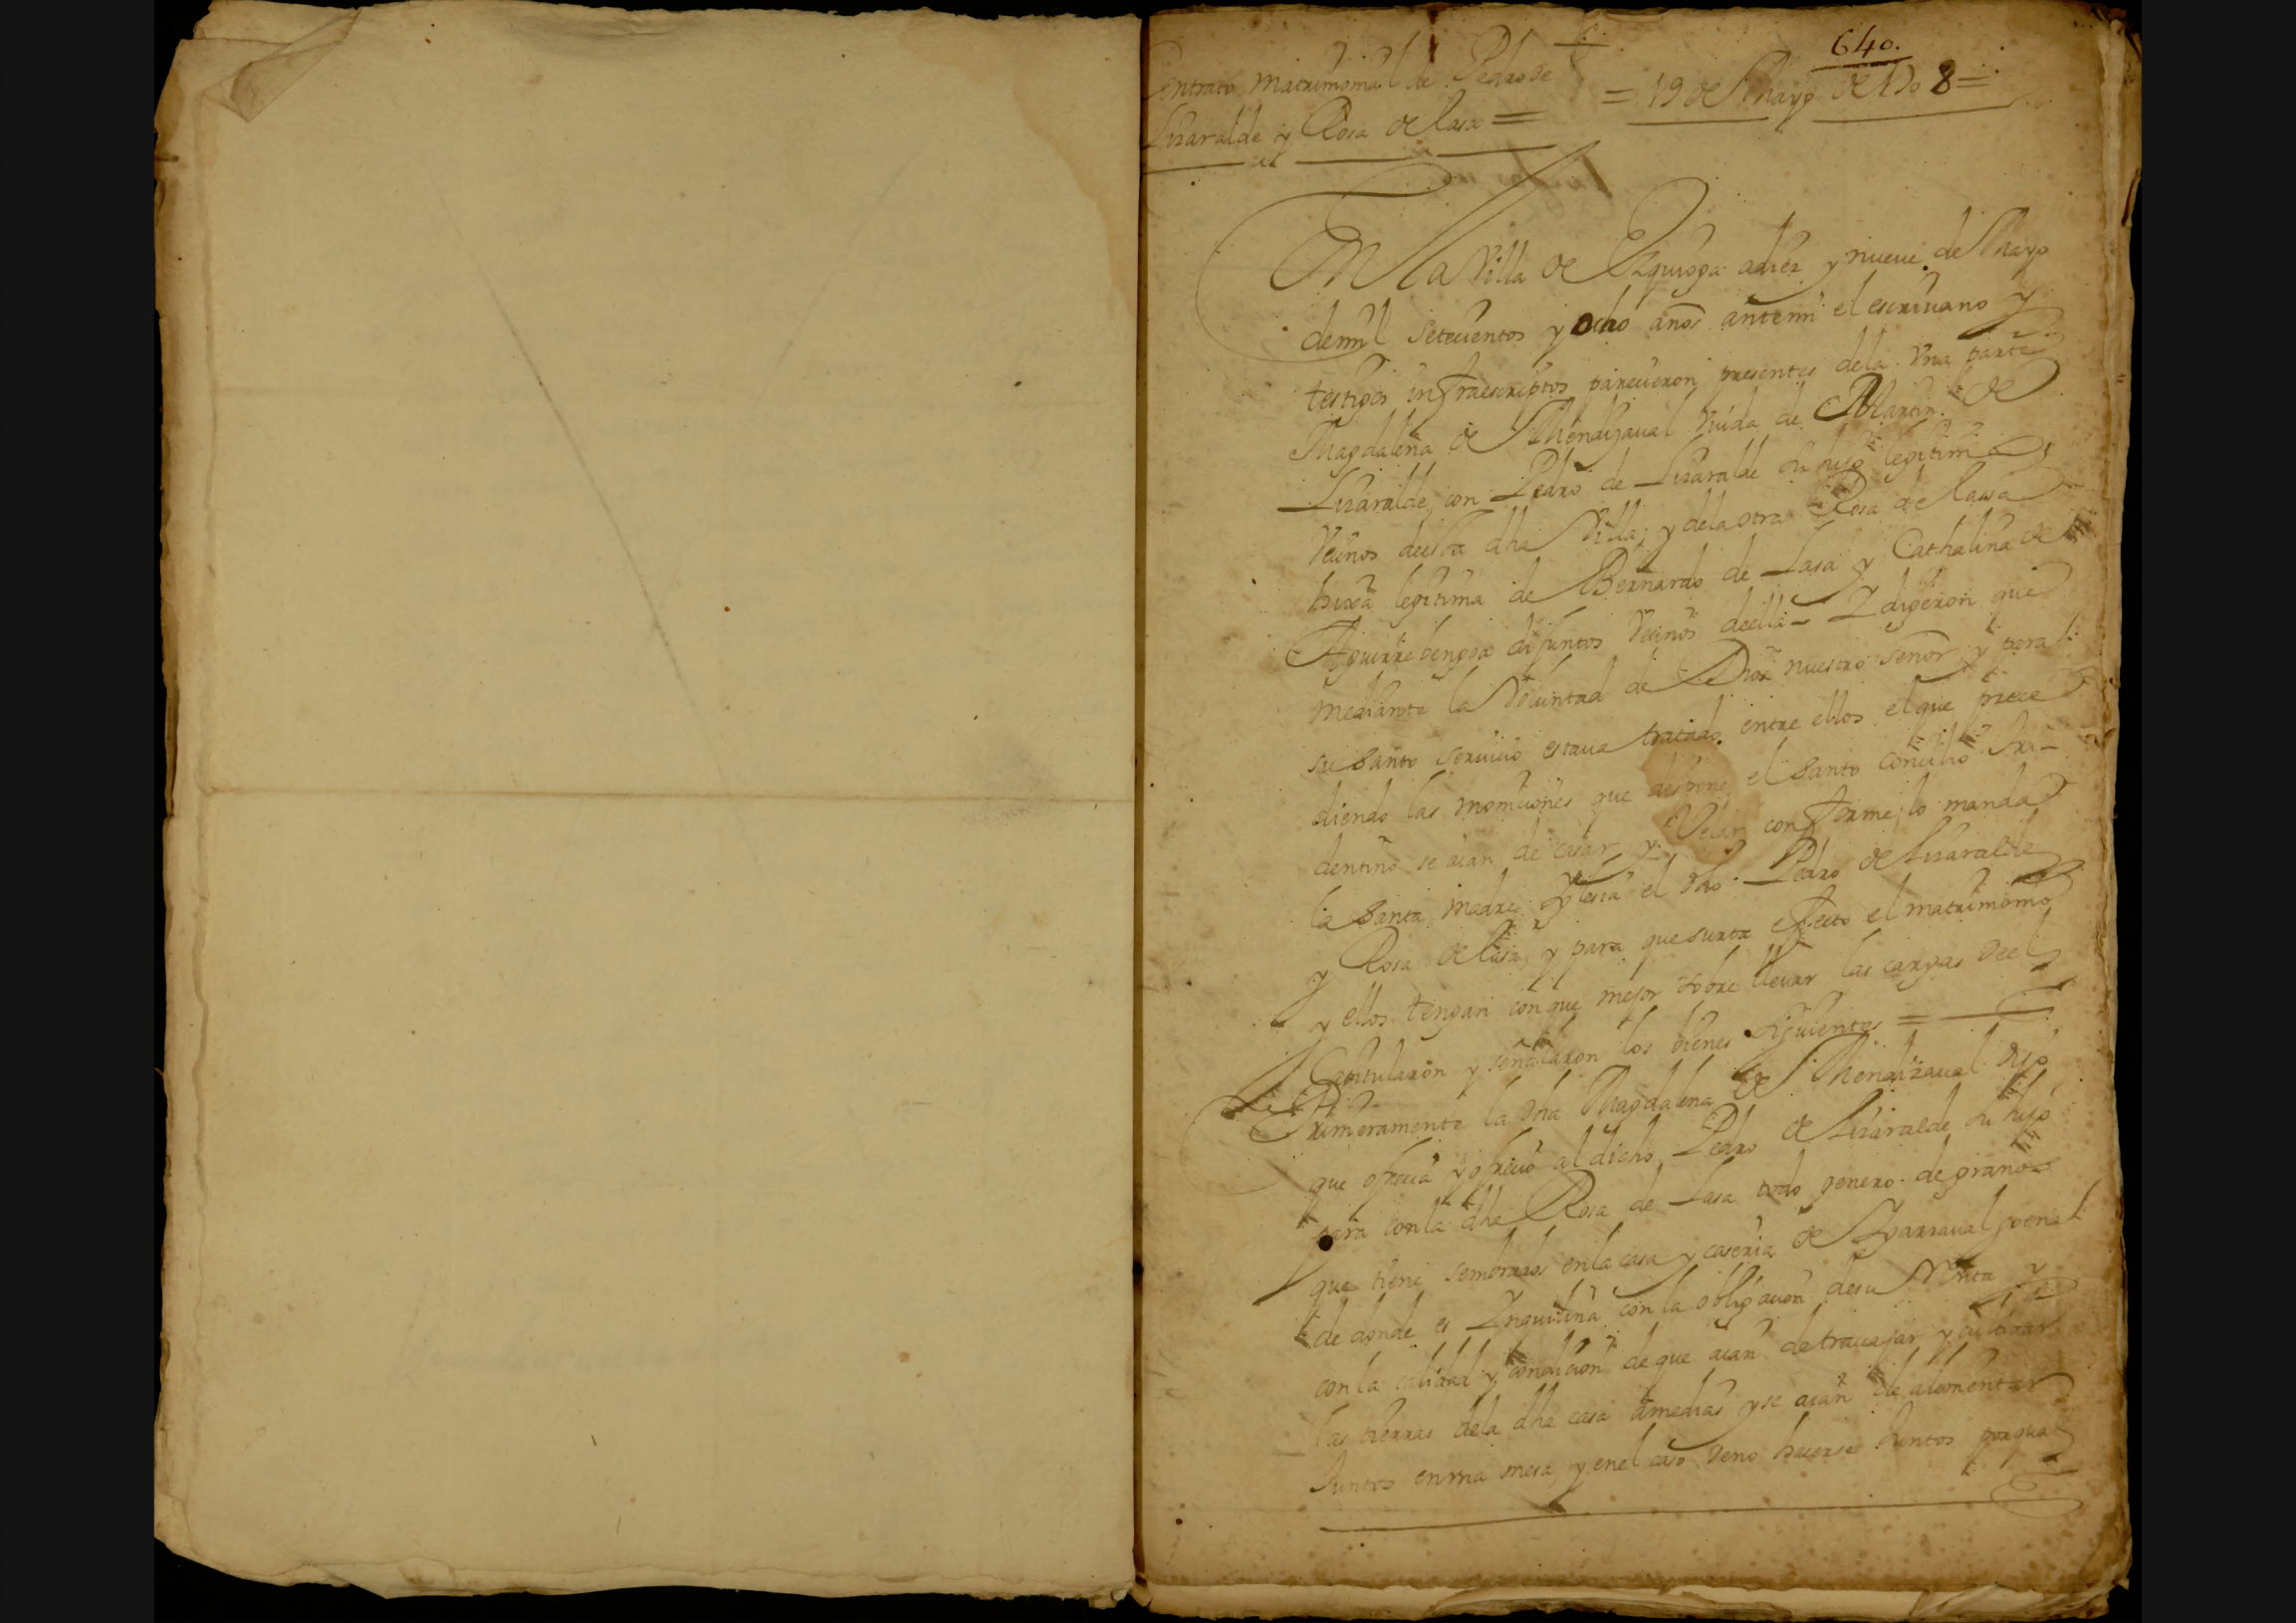 640.
Contrato Matrimonial de Pedro de
Lizaralde y Rosa de Lasa =
= 19 de Mayo de 1708 =
En la Villa de Ezquioga a diez y nueue de Mayo
de mil setecientos y ocho años antemi el escriuano y
testigos infraescriptos parecieron presentes de la Vna parte
Magdalena de Mendizaual viuda de Martin de
Lizaralde, con Pedro de Lizaralde su hijo legitimo
Vecinos de esta dha Villa; y de la otra Rosa de Lassa
hixa legitima de Bernardo de Lasa y Cathalina de
Aguirrebengoa difuntos Vecinos de ella - Y digeron que
mediante la Voluntad de Dios nuestro señor y para
su santo seruicio estaua tratado entre ellos el que prece
diendo las moniciones que dispone el santo concilio tri-
dentino se aian de casar y Velar conforme lo manda
la santa madre Yglesia el dho Pedro de Lizaralde
y Rosa de Lasa, y para que surta efecto el matrimonio
y ellos tengan con que mejor sobre lleuar las cargas del
Capitularon y señalaron los bienes siguientes =
Primeramente la dha Magdalena de Mendizaual dijo
que ofrecia y ofrecio al dicho Pedro de Lizaralde su hijo
para con la dha Rosa de Lasa todo genero de granos
que tiene sembrados en la casa y caseria de
de donde es Ynquilina con la obligacion de su Renta y
con la calidad y condicion de que aian de trauajar y cultiuar
las tierras de la dha casa a medias y se aian de alimentar
Juntos en vna mesa, y en el caso de no hacerse